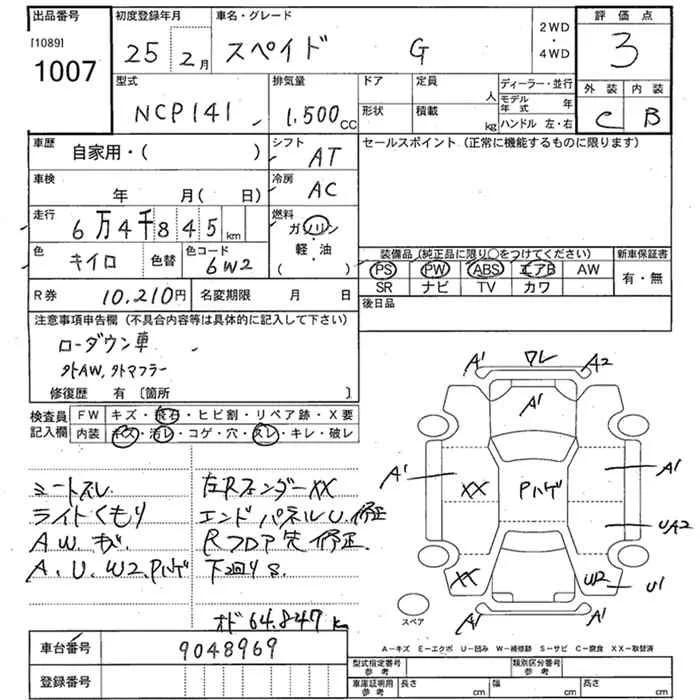 出品番号 初度登録年月 車名・グレード 2WD・4WD 評価点
[1089]
1007 25 2月 スペイド G 3
型式 排気量 ドア 定員 人 ディーラー・並行 外装 内装
NCP141 1,500cc 形状 積載 kg モデル年式 年 C B
ハンドル 左・右
車歴 自家用・( ) シフト AT セールスポイント(正常に機能するものに限ります)
車検 年 月(日) 冷房 AC
走行 6万4千845km 燃料 ガソリン・軽・油 ( )
色 キイロ 色替 色コード 6W2 装備品(純正品に限り○をつけてください) 新車保証書
PS PW ABS エアB AW 有・無
SR ナビ TV カワ
R券 10,210円 名変期限 月 日 後日品
注意事項申告欄(不具合内容等は具体的に記入して下さい)
ローダウン車
外AW,外マフラー
修復歴 有〔箇所 〕
検査員記入欄 FW キズ・飛石・ヒビ割・リペア跡・X要
内装 キズ・汚レ・コゲ・穴・スレ・キレ・破レ
シートスレ 左Rフェンダー XX
ライトくもり エンドパネルU.修正
A.W.キズ Rフロア先修正
A.U.W2.Pハゲ 下回りS.
オド64.847km
A1 ワレ A2
A1
A1 XX Pハゲ A1
UA2
XX U2 U1
A1 A1
スペア
A-キズ E-エクボ U-凹み W-補修跡 S-サビ C-腐食 XX-取替済
車台番号 9048969 型式指定番号 参考 類別区分番号 参考
登録番号 車庫証明用 参考 長さ cm 幅 cm 高さ cm